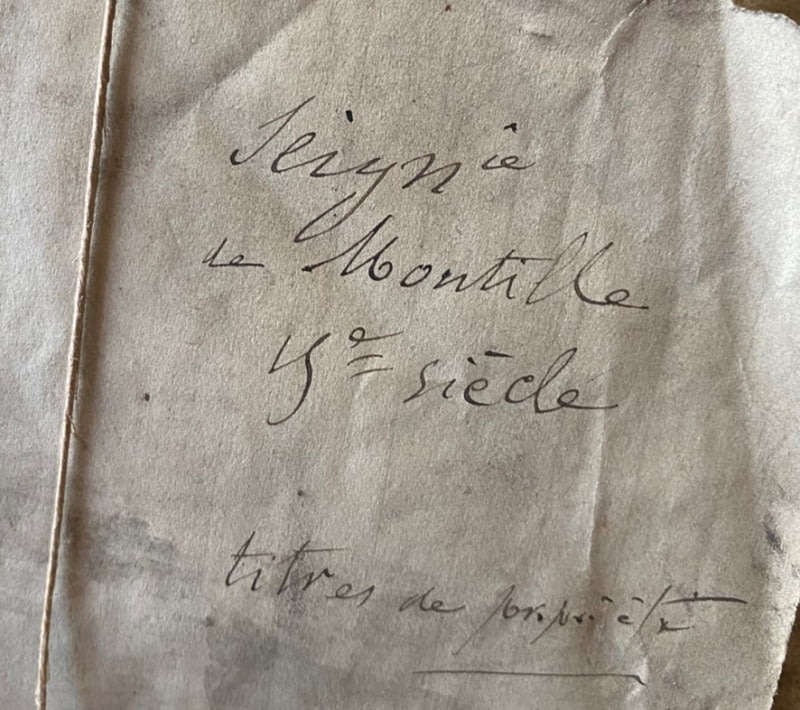 Seign^ie
de Montille
15e siècle
titres de propriété